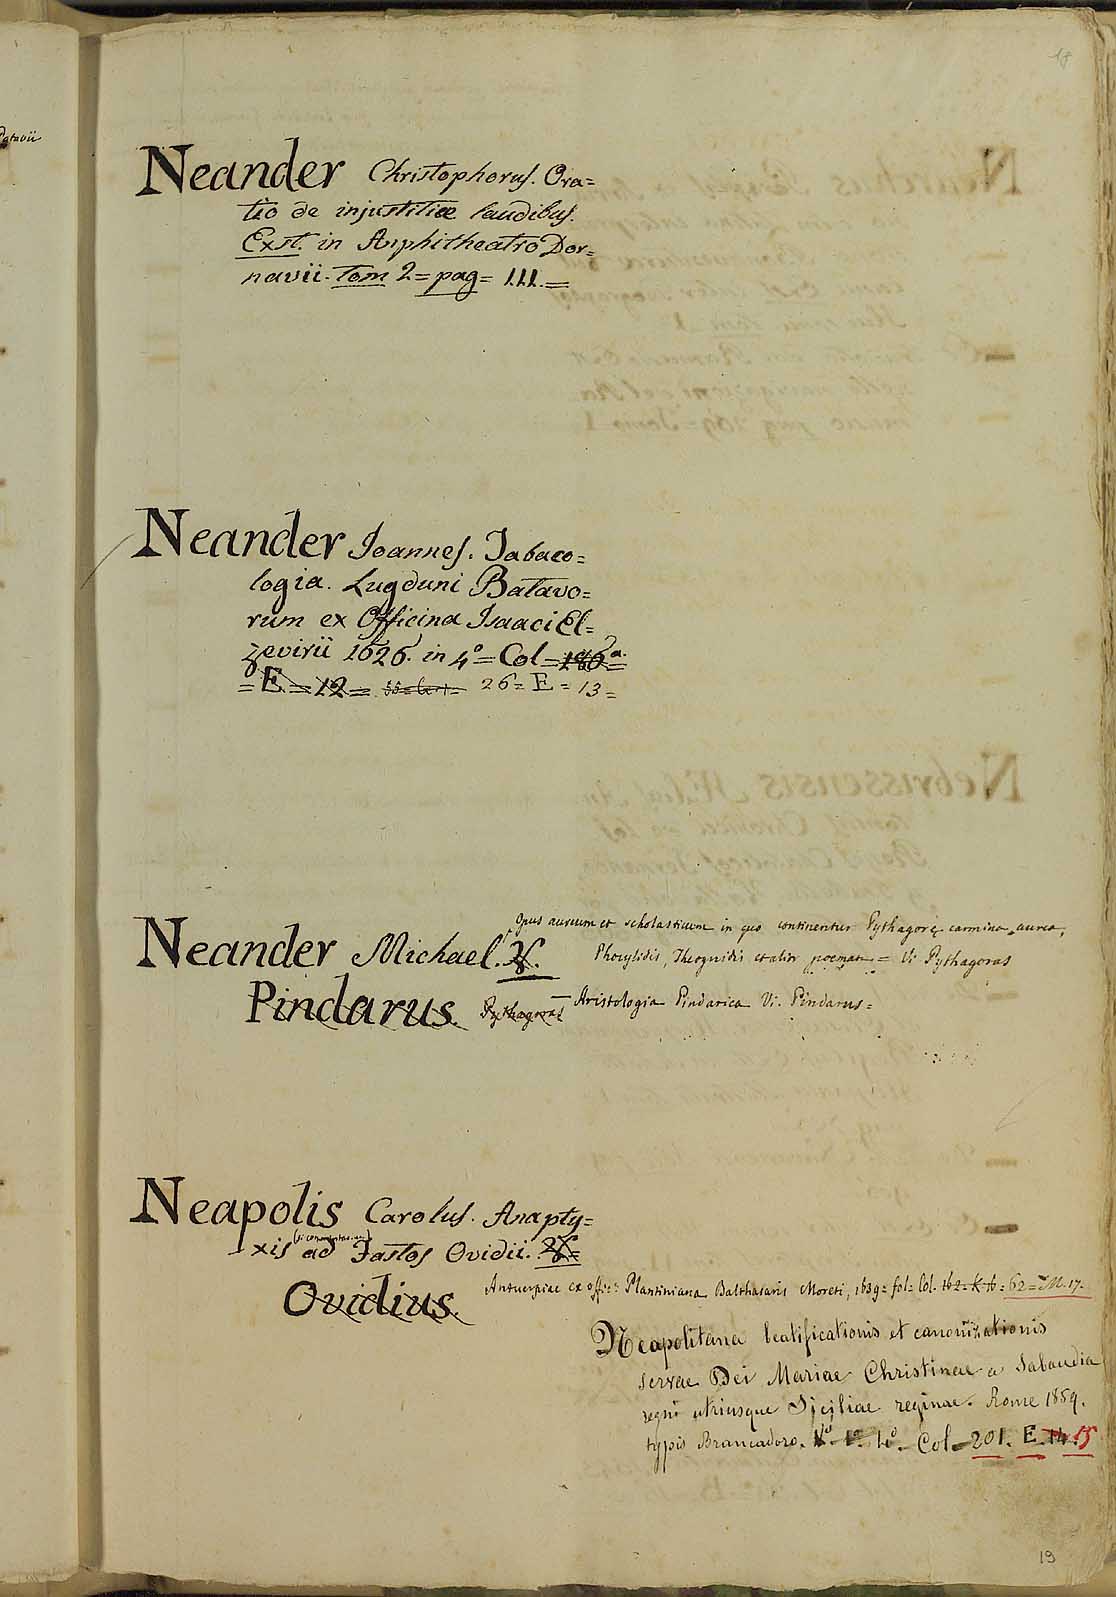 18
Patavii
Neander Christophorus. Ora=
tio de injustitiæ laudibus.
Exst. in Anphitheatro Dor=
navii. tom 2= pag= 111.=
Neander Joannes. Tabaco=
logia. Lugduni Batavo=
rum ex Officina Isaaci El=
zevirii 1626. in 4º= Col=186ª.=
=E=12= 26= E= 13=
Opus aureum et scholasticum in quo continentur Pythagoræ carmina aurea,
Neander Michael. V. Phocylidis, Theognidis et alior poemata= Vi Pythagoras
Pindarus. Pythagoras Aristologia Pindarica Vi. Pindarus=
Neapolis Carolus. Anapty=
xis ad Fastos Ovidii. V.=
Ovidius. Antuerpiae ex offic: Plantiniana Balthasaris Moreti, 1639= fol= Col. 162= K-6= 62= M. 17=
Neapolitana beatificationis et canonizationis
servae Dei Mariae Christinae a Sabaudia
regni utriusque Siciliae reginae. Rome 1859.
typis Brancadoro. 4º. Col=201. E. 14. 15
19